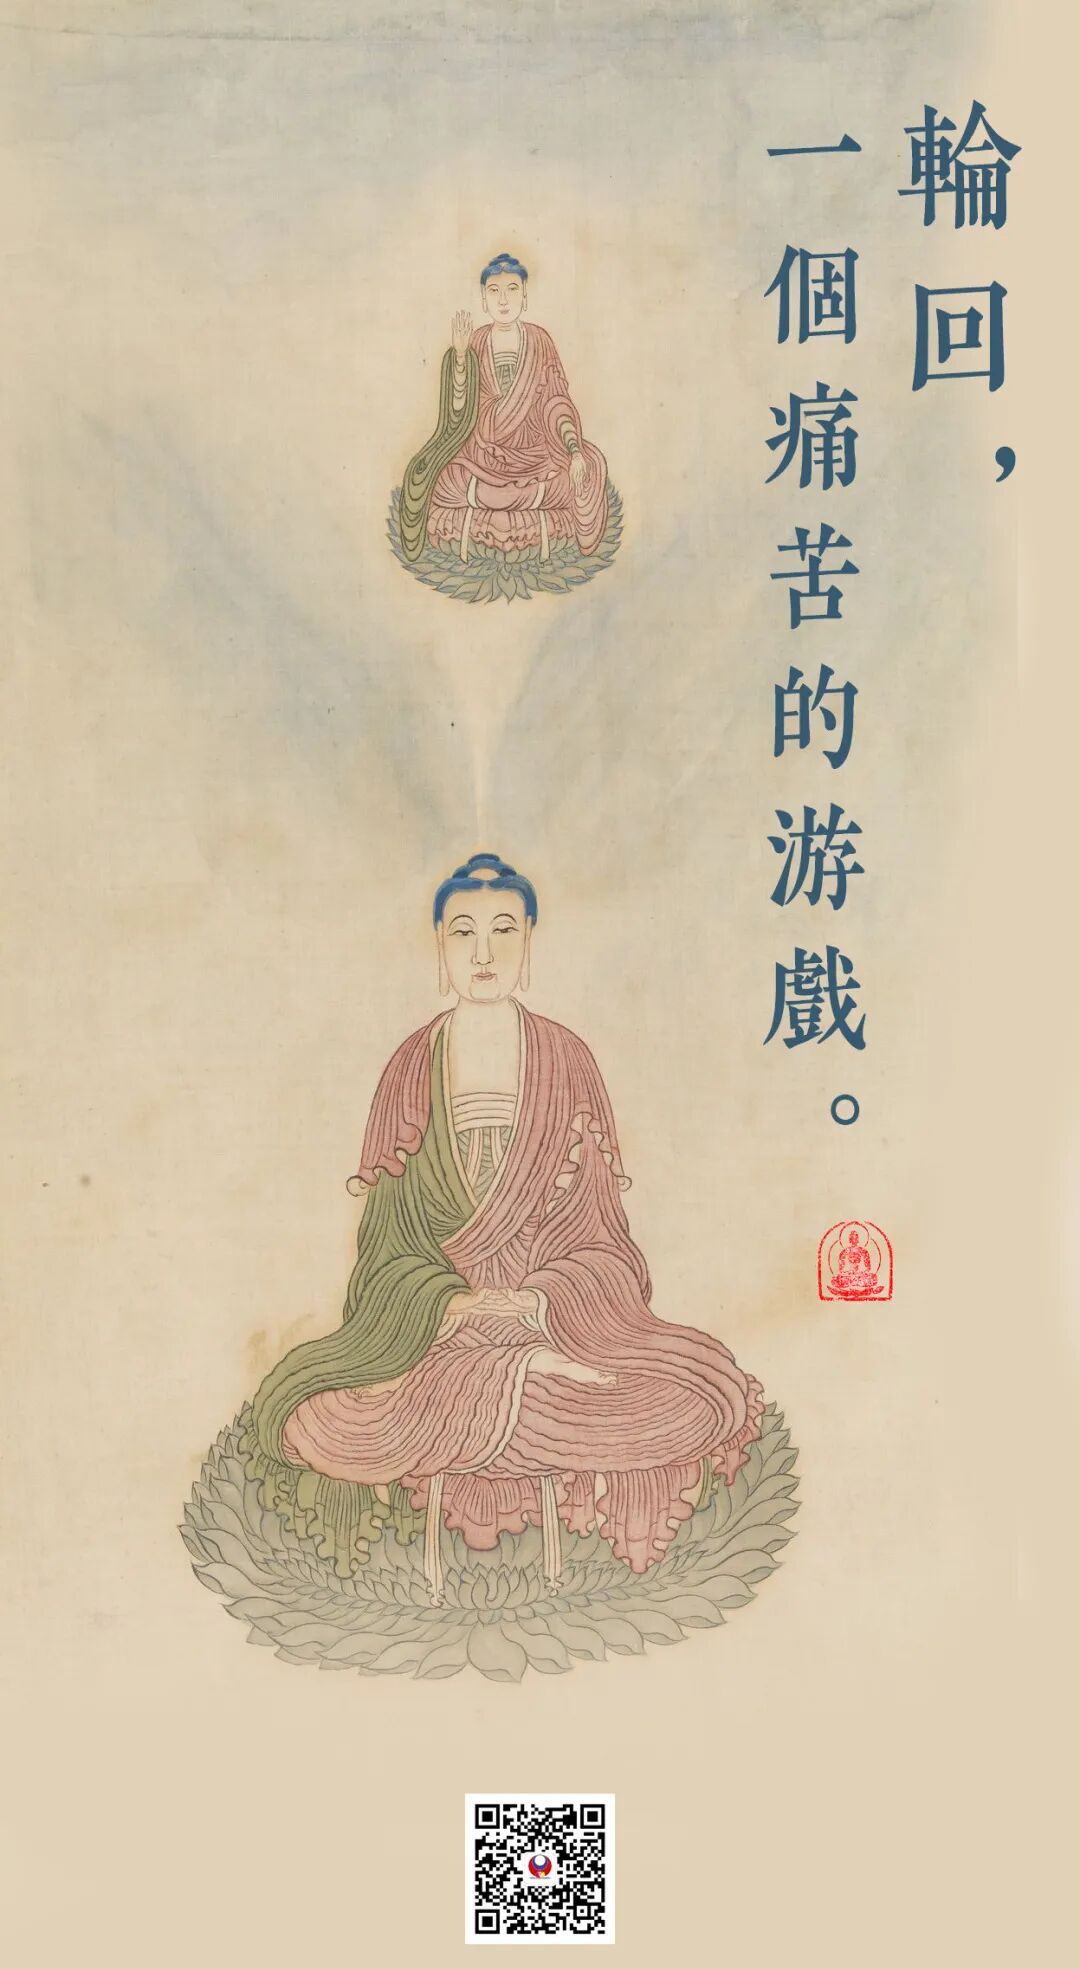 輪回，
一個痛苦的游戲。